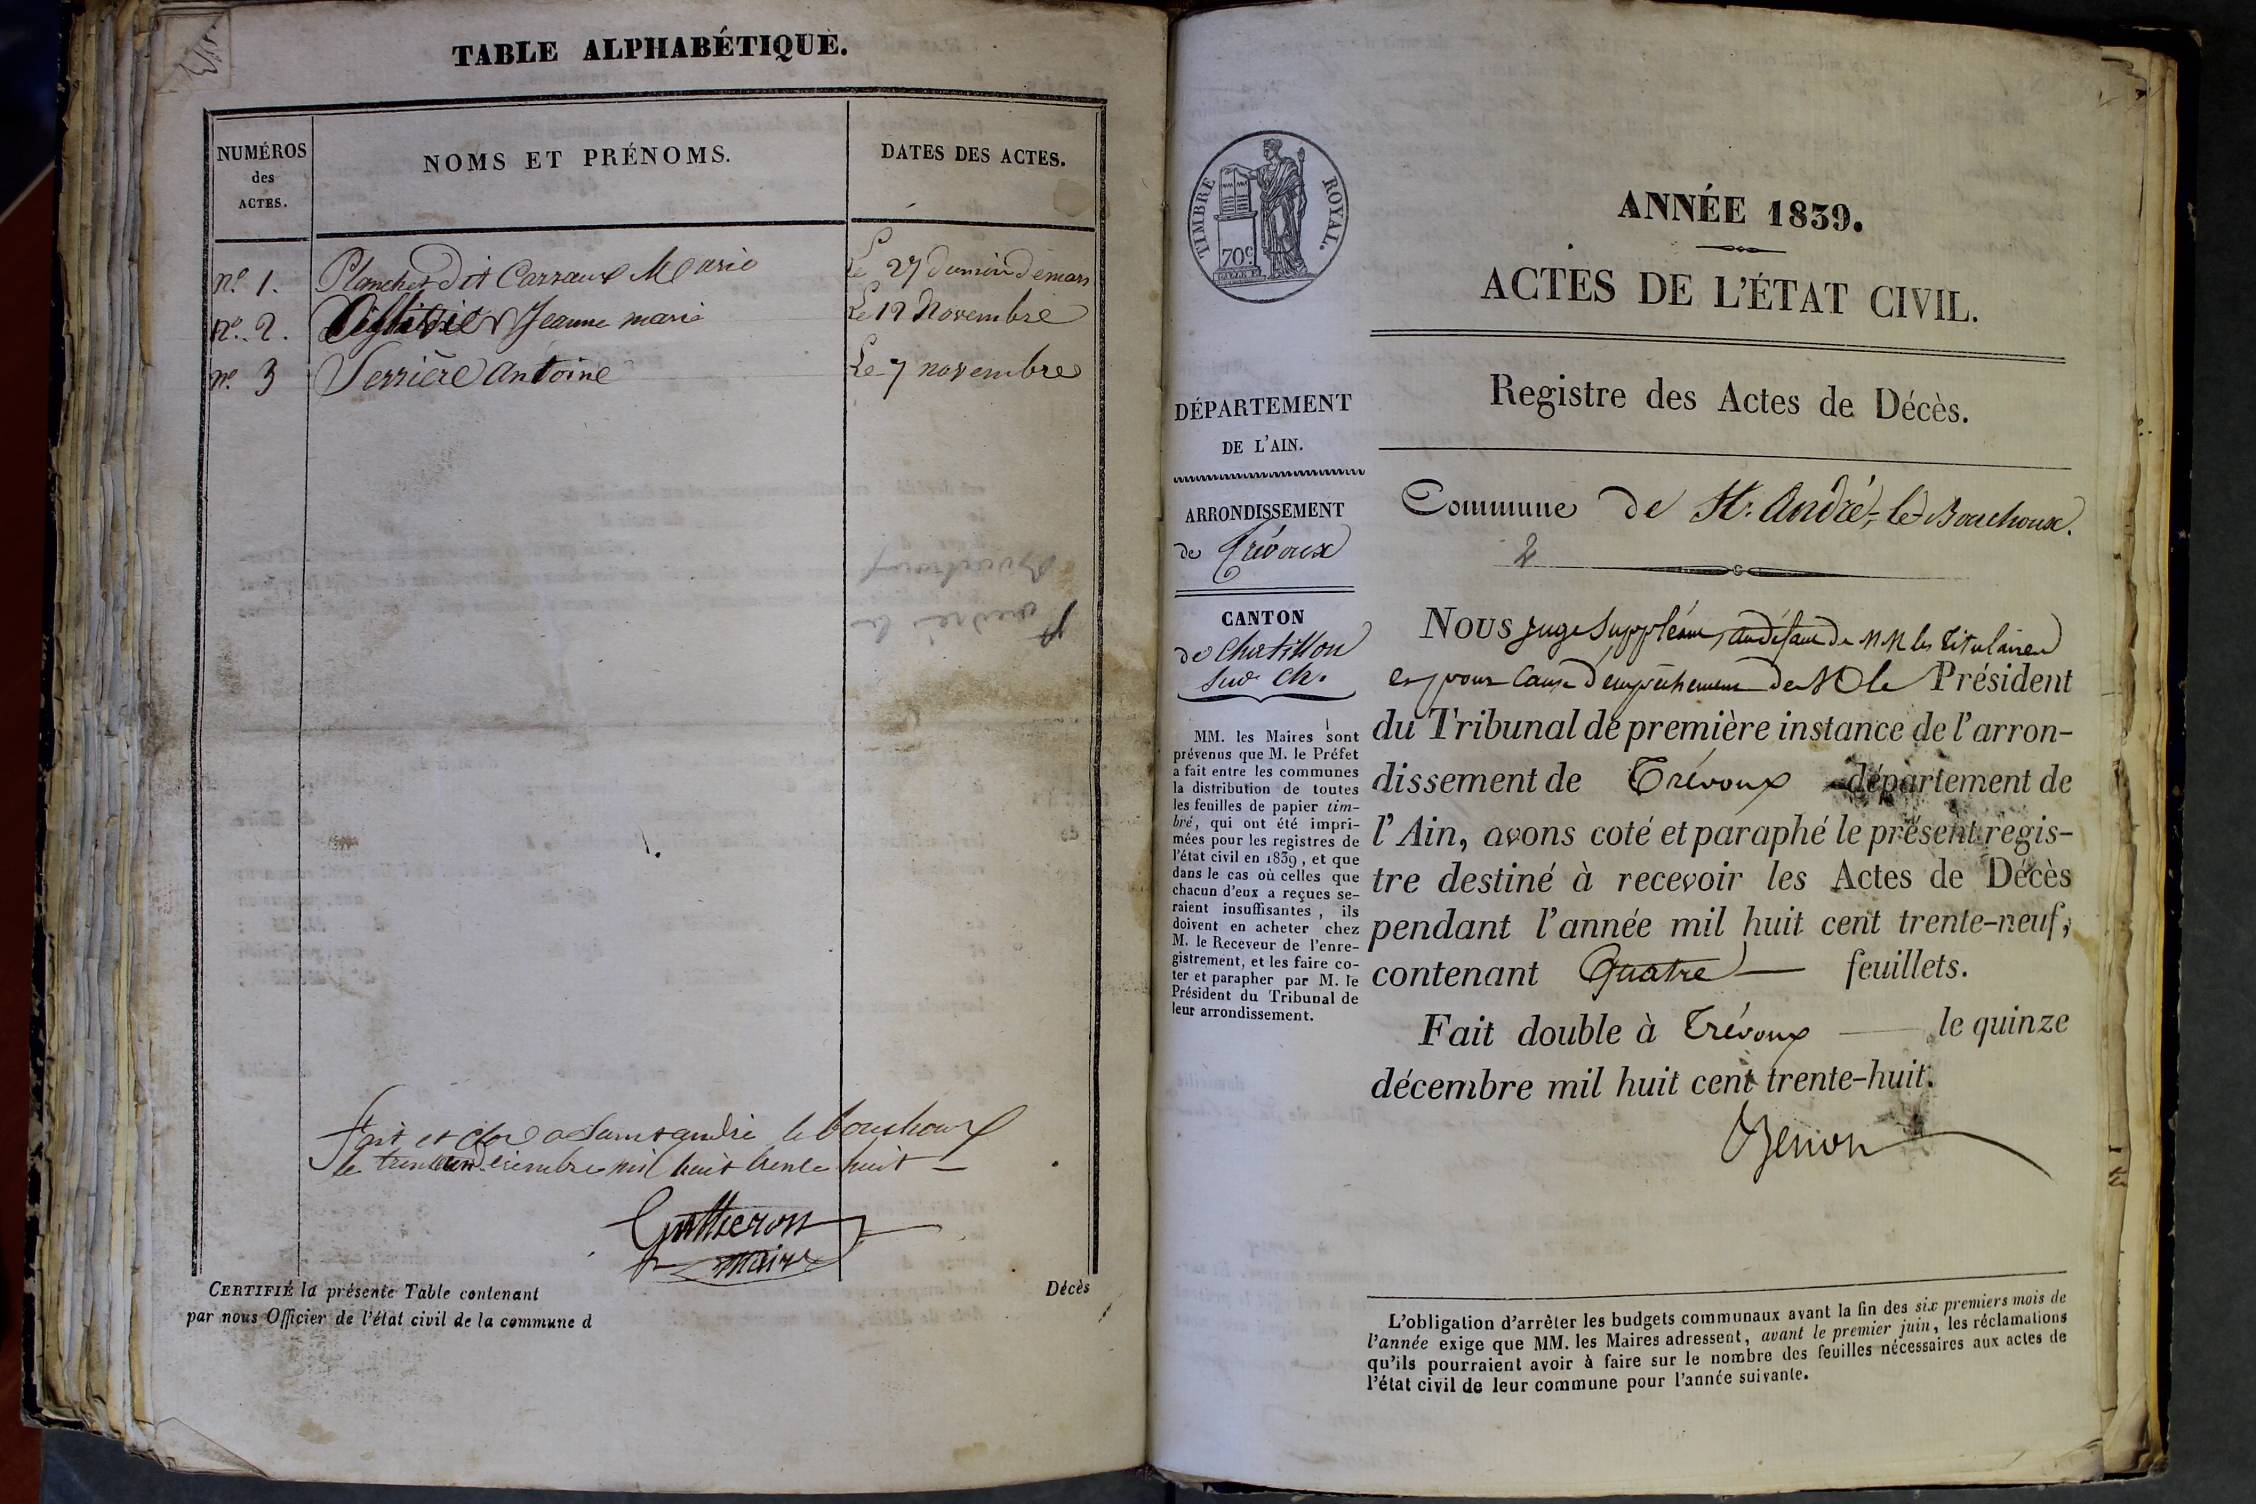 TABLE ALPHABÉTIQUE.
NUMÉROS
des
ACTES.
NOMS ET PRÉNOMS.
DATES DES ACTES.
nº 1. Planchet dit Carraux Marie Le 27 du mois de mars
nº 2. Jeanne marie Le 19 Novembre
nº 3 Serrière antoine Le 7 novembre
fait et clos a Saint andré le bouchoux
le trente un décembre mil huit trente huit
maire
CERTIFIÉ la présente Table contenant Décès
par nous Officier de l'état civil de la commune d
TIMBRE ROYAL.
70ᶜ
ANNÉE 1839.
ACTES DE L'ÉTAT CIVIL.
Registre des Actes de Décès.
DÉPARTEMENT
DE L'AIN.
ARRONDISSEMENT
de Trévoux
CANTON
de Chatillon
sur Ch.
MM. les Maires sont
prévenus que M. le Préfet
a fait entre les communes
la distribution de toutes
les feuilles de papier tim-
bré, qui ont été impri-
mées pour les registres de
l'état civil en 1839, et que
dans le cas où celles que
chacun d'eux a reçues se-
raient insuffisantes, ils
doivent en acheter chez
M. le Receveur de l'enre-
gistrement, et les faire co-
ter et parapher par M. le
Président du Tribunal de
leur arrondissement.
Commune de St. André-le-Bouchoux.
2
NOUS juge Suppléant, au défaut de MM les titulaires
et pour cause d'empêchement de M le Président
du Tribunal de première instance de l'arron-
dissement de Trévoux département de
l'Ain, avons coté et paraphé le présent regis-
tre destiné à recevoir les Actes de Décès
pendant l'année mil huit cent trente-neuf,
contenant Quatre feuillets.
Fait double à Trévoux le quinze
décembre mil huit cent trente-huit.
L'obligation d'arrêter les budgets communaux avant la fin des six premiers mois de
l'année exige que MM. les Maires adressent, avant le premier juin, les réclamations
qu'ils pourraient avoir à faire sur le nombre des feuilles nécessaires aux actes de
l'état civil de leur commune pour l'année suivante.